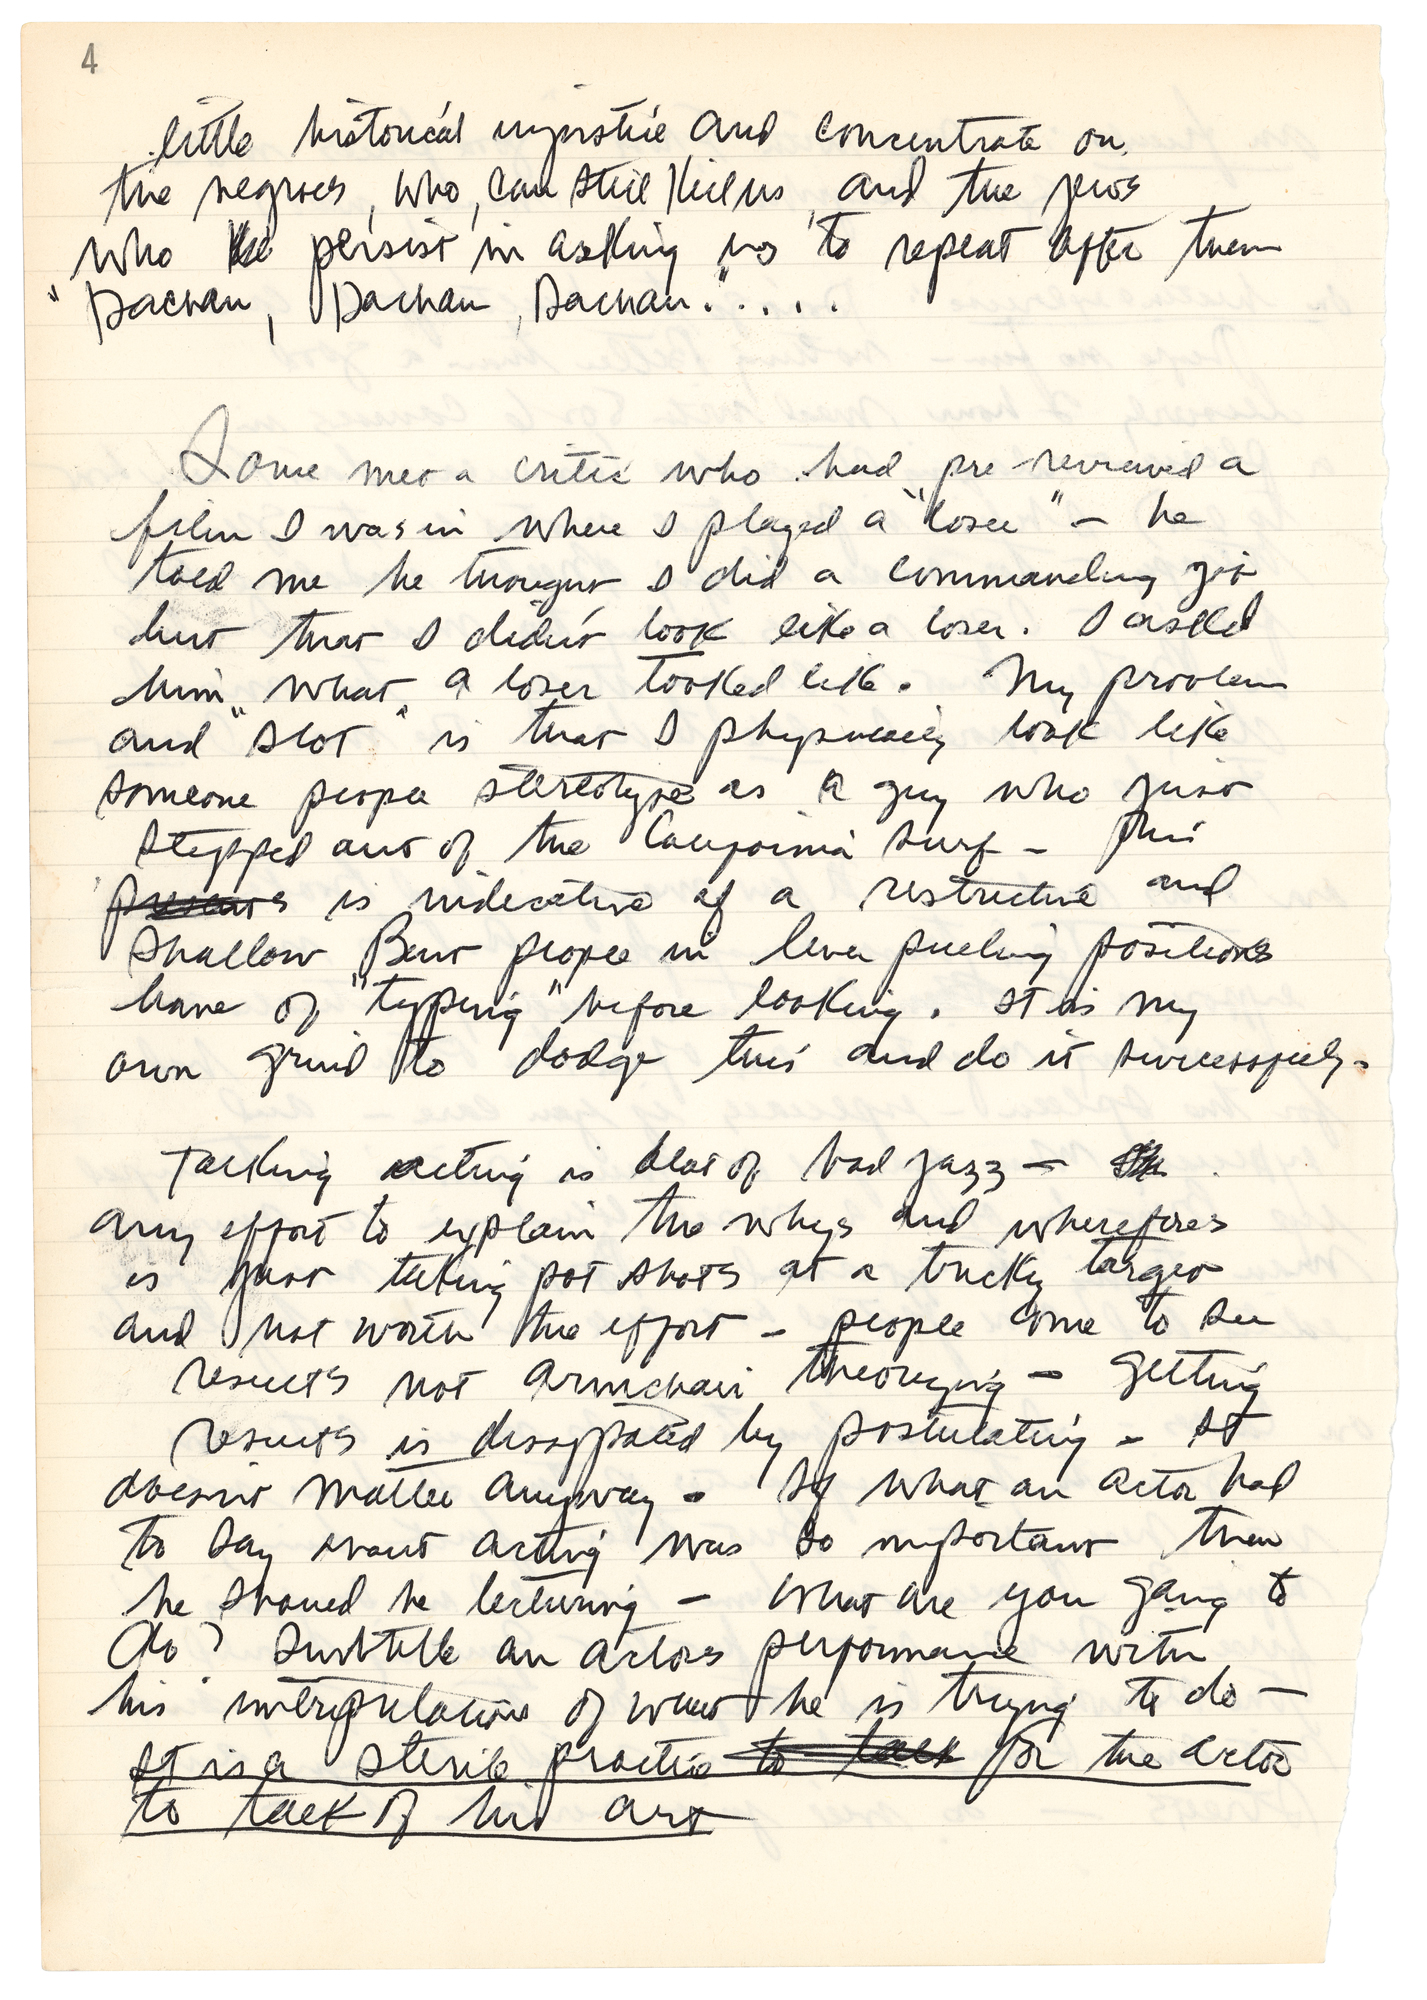 4
little historical injustice and concentrate on
the negroes, who, can still kill us, and the jews
who persist in asking us to repeat after them
"Dachau, Dachau, Dachau." . . . .
Some met a critic who had pre reviewed a
film I was in where I played a "loser" — he
told me he thought I did a commanding job
but that I didn't look like a loser. I asked
him what a loser looked like. My problem
and "slot" is that I physically look like
someone people stereotype as a guy who just
stepped out of the California surf — this
is indicative of a restrictive and
shallow Bent people in lever pulling positions
have of "typing" before looking. It is my
own grind to dodge this and do it successfully.
Talking acting is blat of bad jazz —
any effort to explain the whys and wherefores
is just taking pot shots at a tricky target
and not worth the effort — people come to see
results not armchair theorizing — getting
results is dissipated by postulating — It
doesn't matter anyway — If what an actor had
to say about acting was so important then
he should be lecturing — What are you going to
do? Subtitle an actors performance with
his interpolations of what he is trying to do —
It is a sterile practice to talk for the actor
to talk of his art